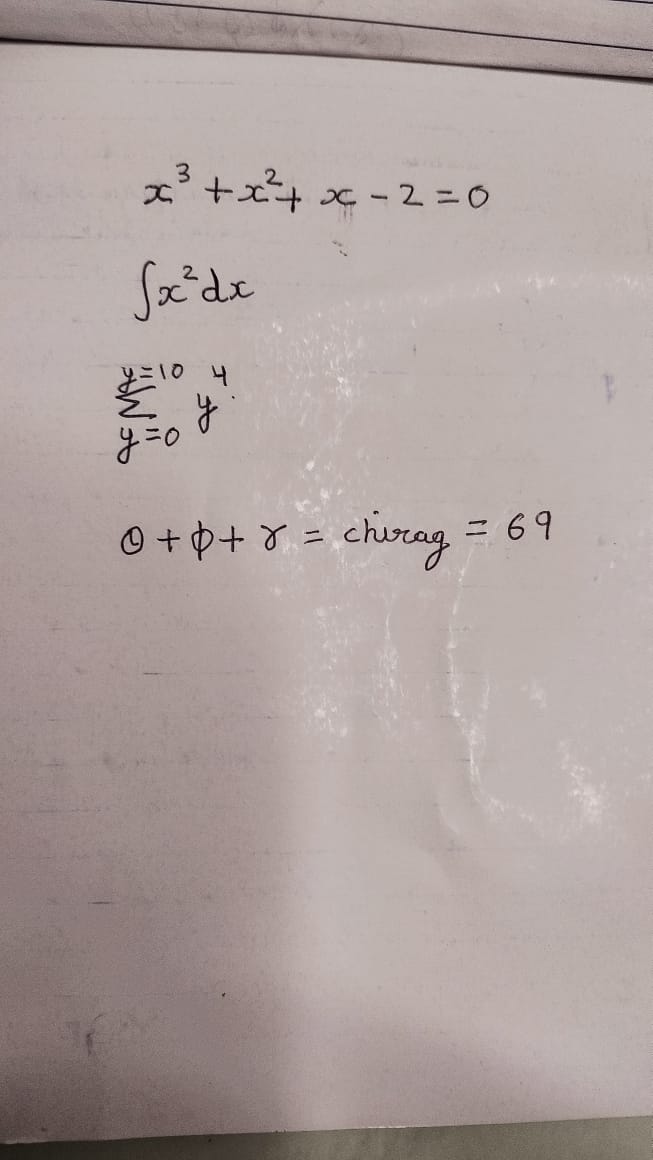 x³ + x² + x - 2 = 0
∫x² dx
y=10 4
Σ y
y=0
Θ + φ + γ = chirag = 69